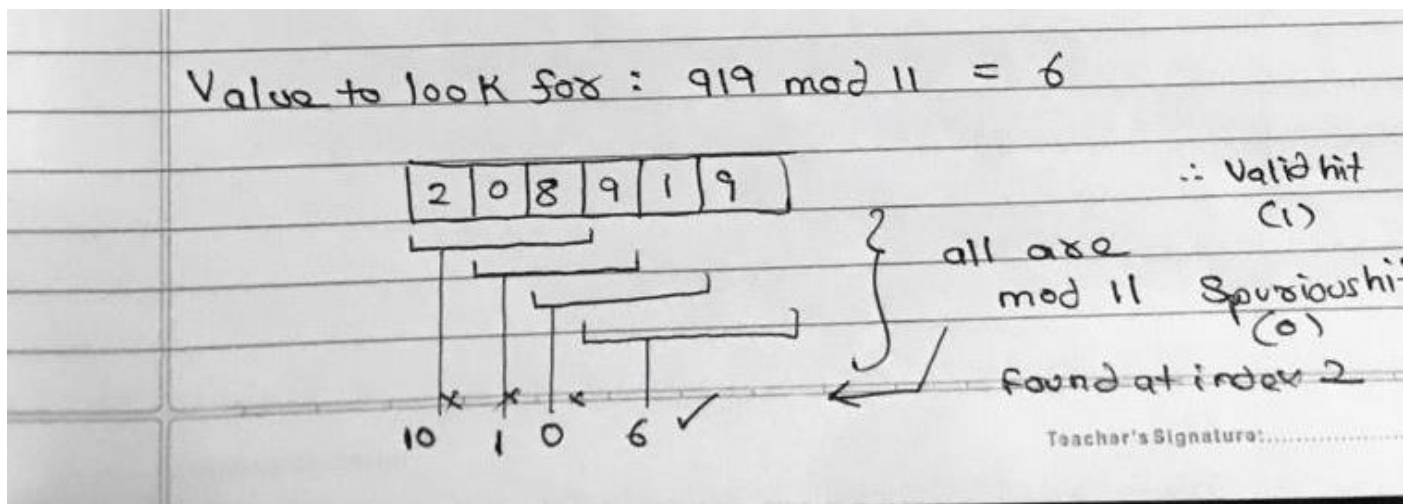 Value to look for : 919 mod 11 = 6
2 0 8 9 1 9
∴ Valid hit
(1)
all are
mod 11 Spurious hit
(0)
found at index 2
× × × ✓
10 1 0 6
Teacher's Signature: